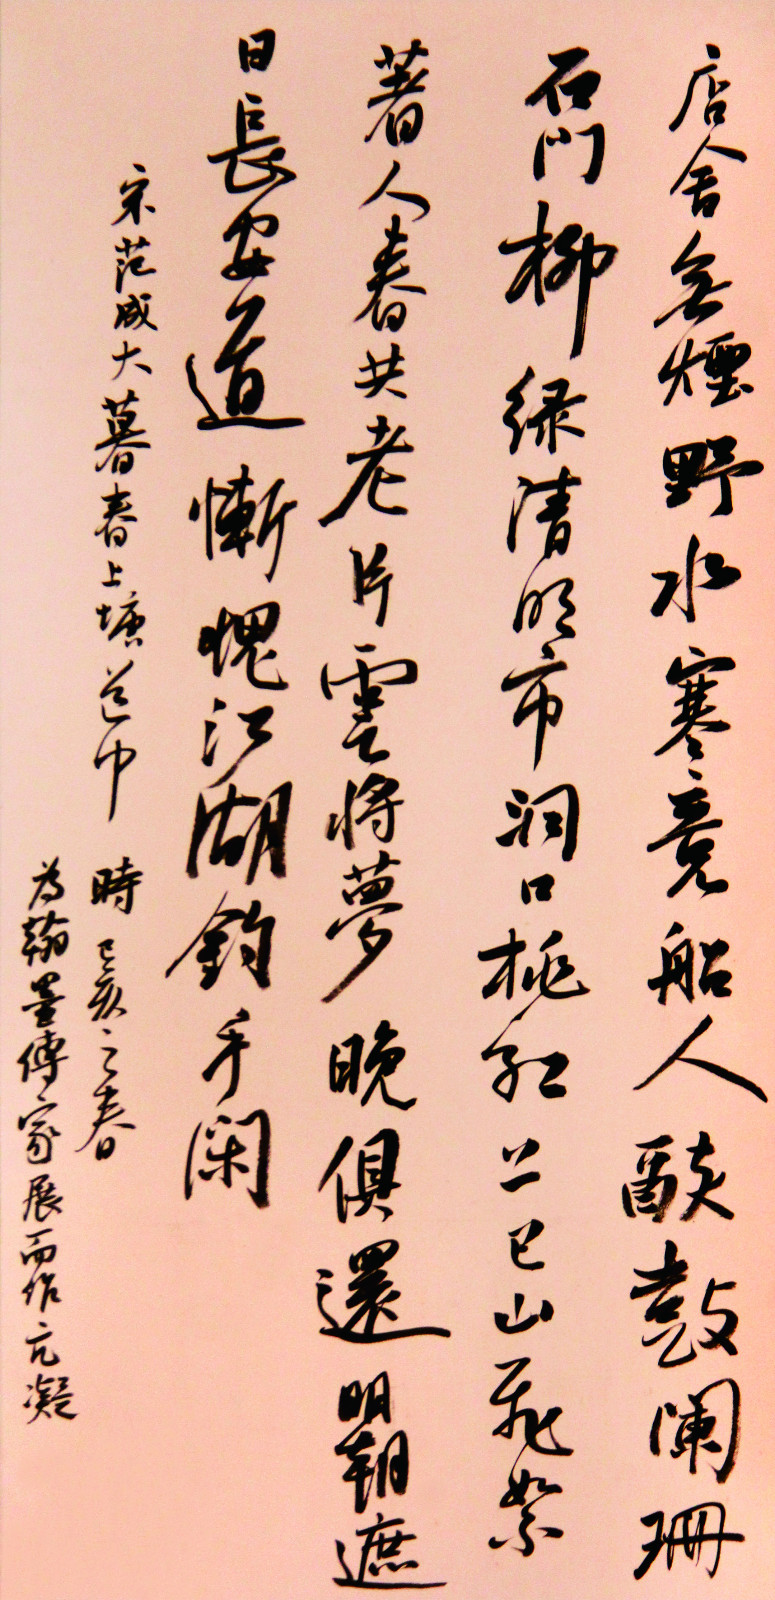 店舍無煙野水寒競船人醉鼓闌珊
石門柳綠清明市洞口桃紅上巳山飛絮
著人春共老片雲將夢晚俱還明朝遮
日長安道慚愧江湖釣手閑
宋范成大暮春上塘道中
時己亥之春
為翰墨傳家展而作亢凝